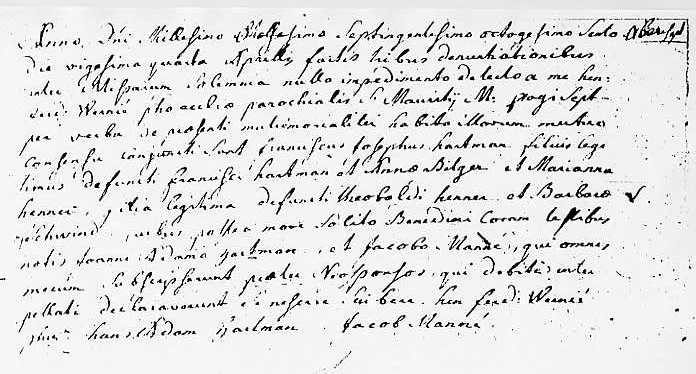 Anno Dni Millesimo Septingentesimo octogesimo Sexto
die vigesima quarta Aprilis factis tribus denuntiationibus
inter Missarum Solemnia nullo impedimento detecto a me hen:
Wernié parochialis S: Mauritij M: pagi Sept-
per verba de præsenti matrimonialiter habito illorum mutuo
Consensu conjuncti sunt franciscus Josephus hartman filius legi
timus defuncti francisci hartman et Annæ Bilger et Marianna
henner filia legitima defuncti theobaldi henner et Barbaræ
Gschwind, quibus postea more Solito Benedixi Coram testibus
notis Joanne Adamo hartman, et Jacobo Manné, qui omnes
mecum Subscripserunt præter Neosponsos, qui debite inter
pellati declaraverunt se nescire Scribere. hen: ferd: Wernié
hans Adam hartman Jacob Manné.